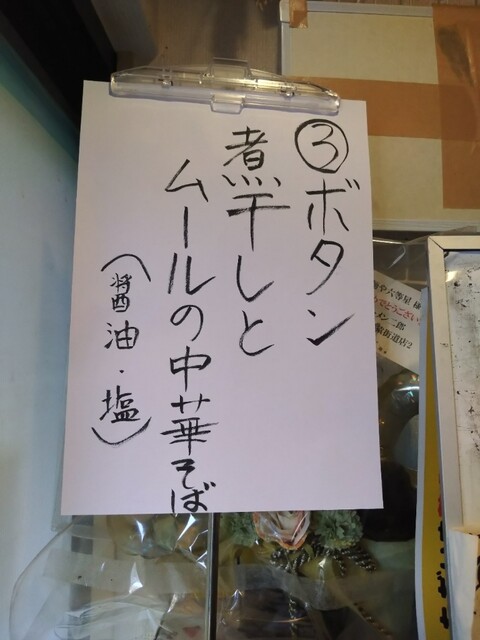 ③ボタン
煮干しと
ムールの中華そば
(醤油・塩)